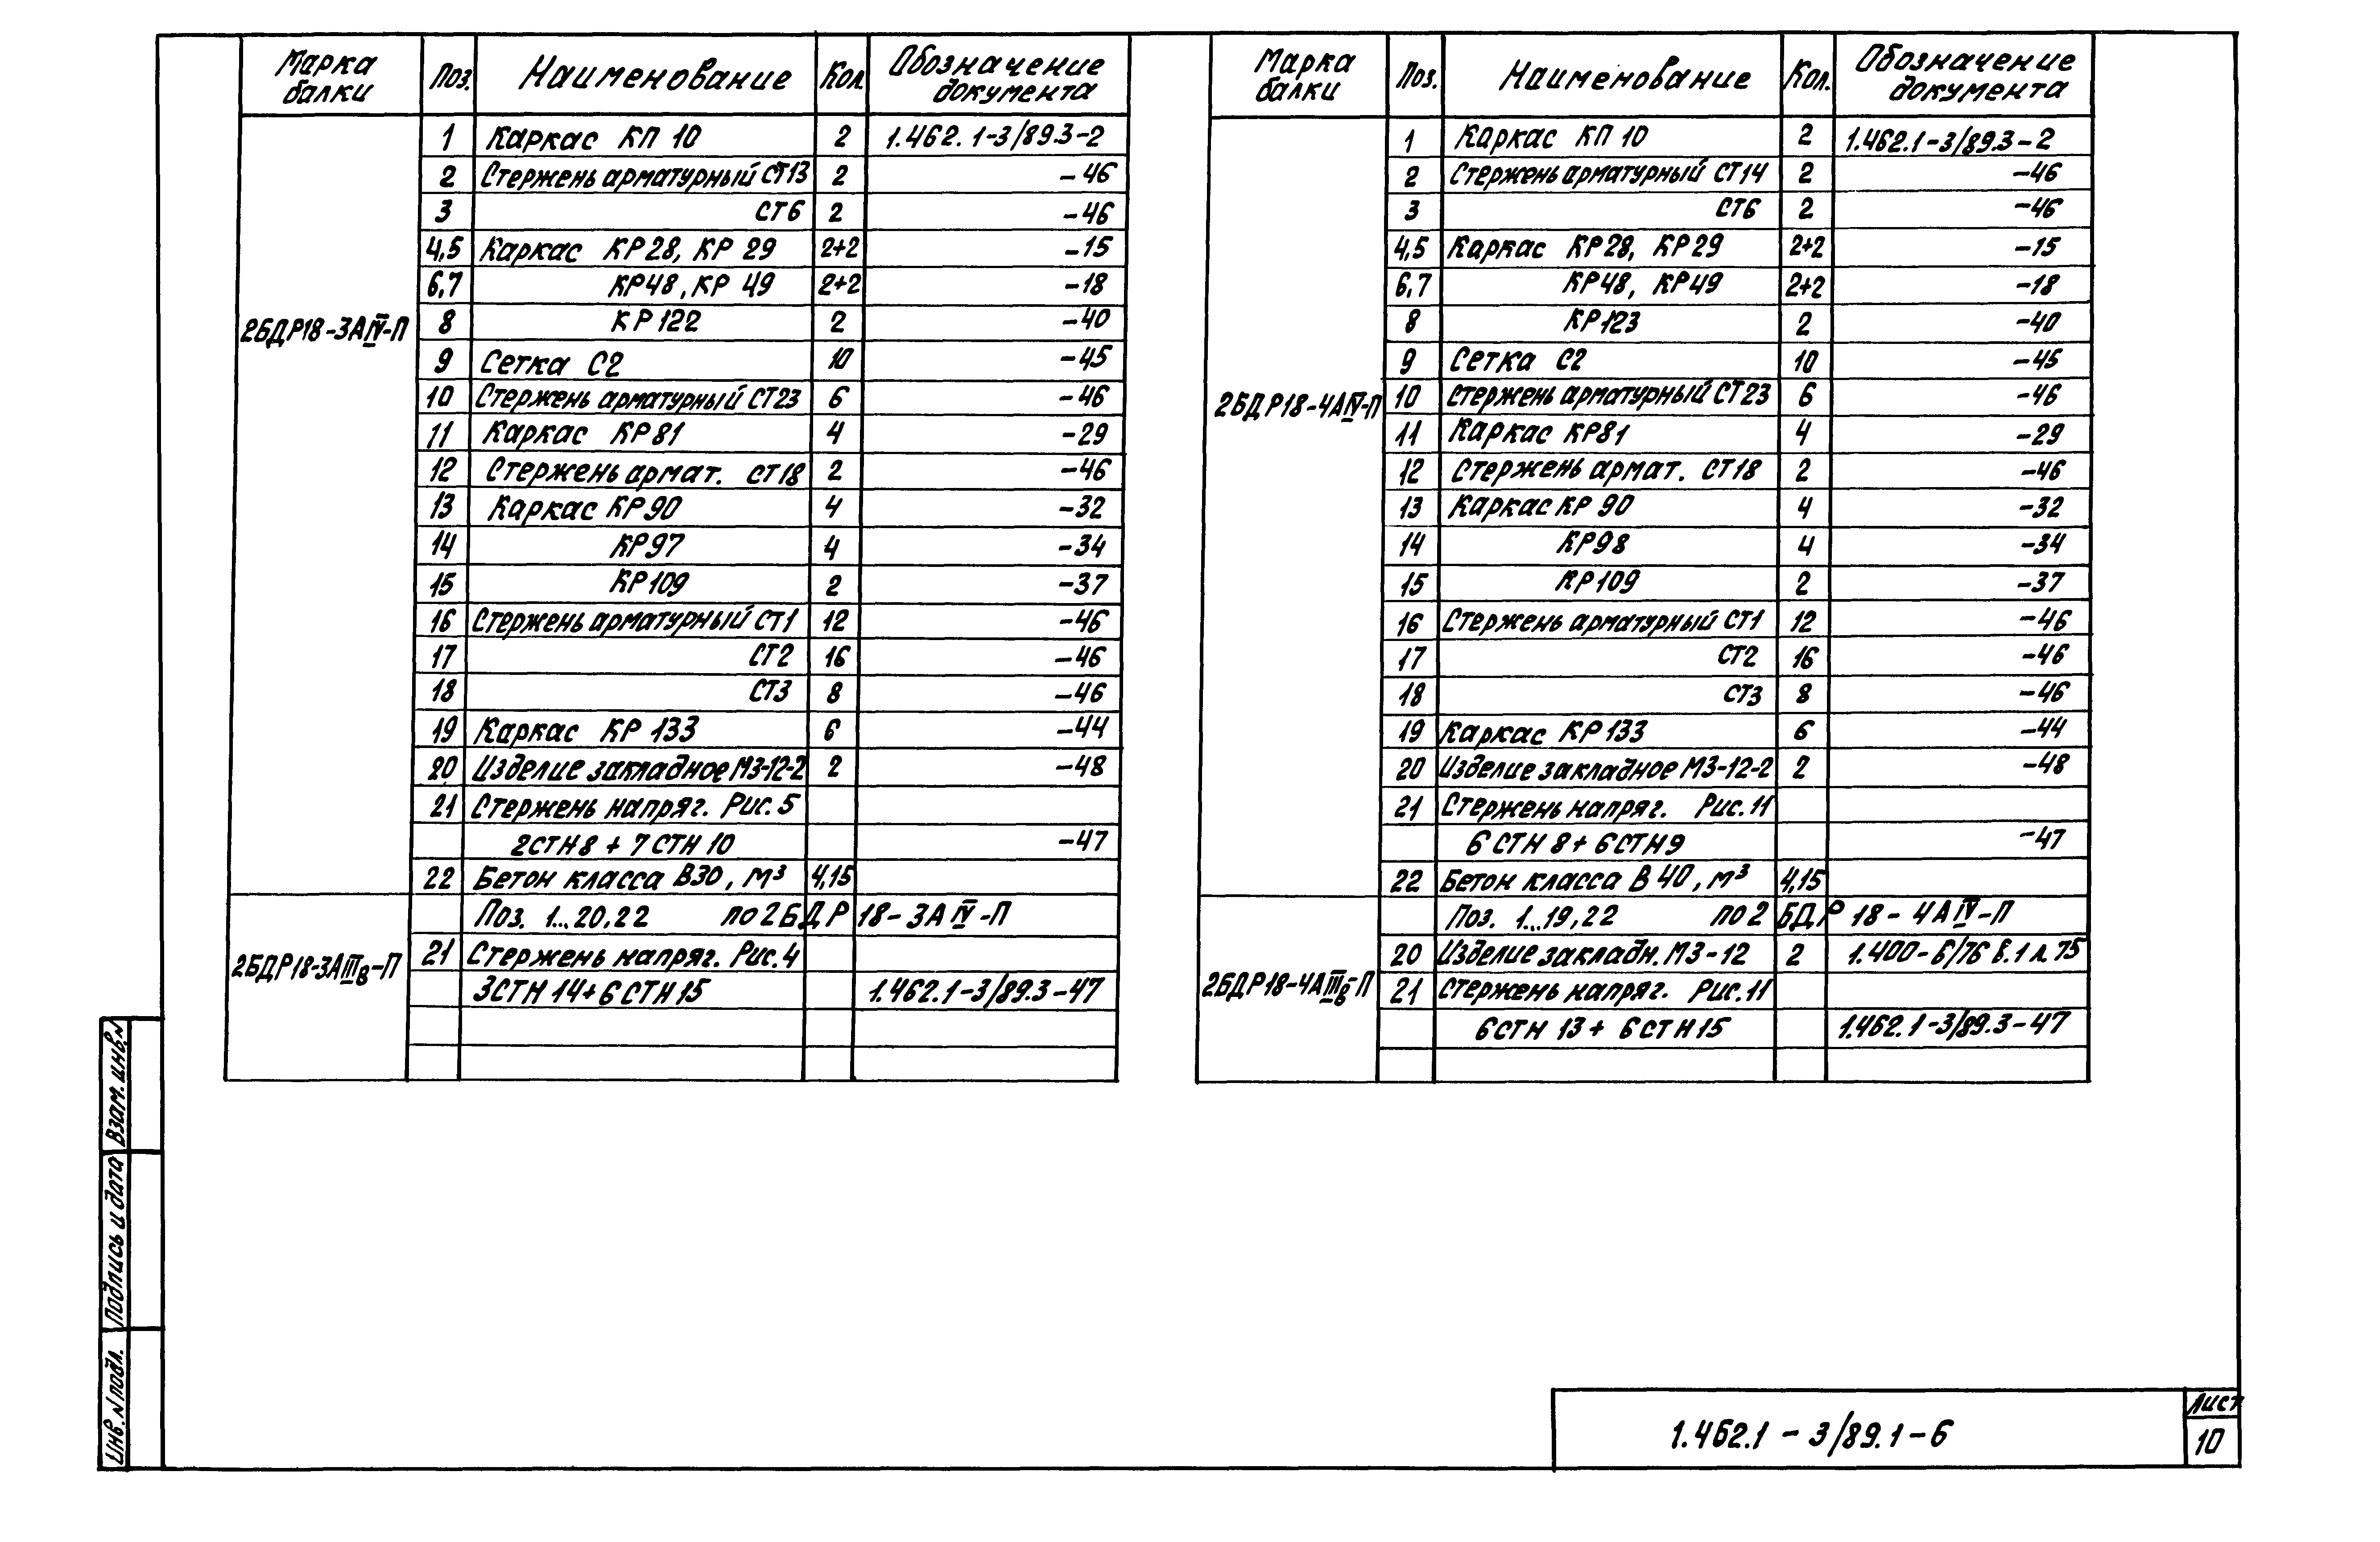 Марка балки Поз. Наименование Кол. Обозначение документа
2БДР18-3АIV-П
1 Каркас КП 10 2 1.462.1-3/89.3-2
2 Стержень арматурный СТ13 2 -46
3 СТ6 2 -46
4,5 Каркас КР28, КР 29 2+2 -15
6,7 КР48, КР 49 2+2 -18
8 КР122 2 -40
9 Сетка С2 10 -45
10 Стержень арматурный СТ23 6 -46
11 Каркас КР81 4 -29
12 Стержень армат. СТ18 2 -46
13 Каркас КР90 4 -32
14 КР97 4 -34
15 КР109 2 -37
16 Стержень арматурный СТ1 12 -46
17 СТ2 16 -46
18 СТ3 8 -46
19 Каркас КР 133 6 -44
20 Изделие закладное МЗ-12-2 2 -48
21 Стержень напряг. Рис.5
2СТН8 + 7СТН10 -47
22 Бетон класса В30, м³ 4,15
2БДР18-3АIIIв-П
Поз. 1...20,22 по 2БДР 18-3АIV-П
21 Стержень напряг. Рис.4
3СТН14+6СТН15 1.462.1-3/89.3-47
Марка балки Поз. Наименование Кол. Обозначение документа
2БДР18-4АIV-П
1 Каркас КП 10 2 1.462.1-3/89.3-2
2 Стержень арматурный СТ14 2 -46
3 СТ6 2 -46
4,5 Каркас КР28, КР29 2+2 -15
6,7 КР48, КР49 2+2 -18
8 КР123 2 -40
9 Сетка С2 10 -45
10 Стержень арматурный СТ23 6 -46
11 Каркас КР81 4 -29
12 Стержень армат. СТ18 2 -46
13 Каркас КР 90 4 -32
14 КР98 4 -34
15 КР109 2 -37
16 Стержень арматурный СТ1 12 -46
17 СТ2 16 -46
18 СТ3 8 -46
19 Каркас КР133 6 -44
20 Изделие закладное МЗ-12-2 2 -48
21 Стержень напряг. Рис.11
6СТН8+6СТН9 -47
22 Бетон класса В40, м³ 4,15
2БДР18-4АIIIв-П
Поз. 1...19,22 по 2БДР 18-4АIV-П
20 Изделие закладн. МЗ-12 2 1.400-6/76 в.1 л.75
21 Стержень напряг. Рис.11
6СТН 13+ 6СТН15 1.462.1-3/89.3-47
Взам. инв. N
Подпись и дата
Инв. N подл.
1.462.1-3/89.1-6
Лист
10